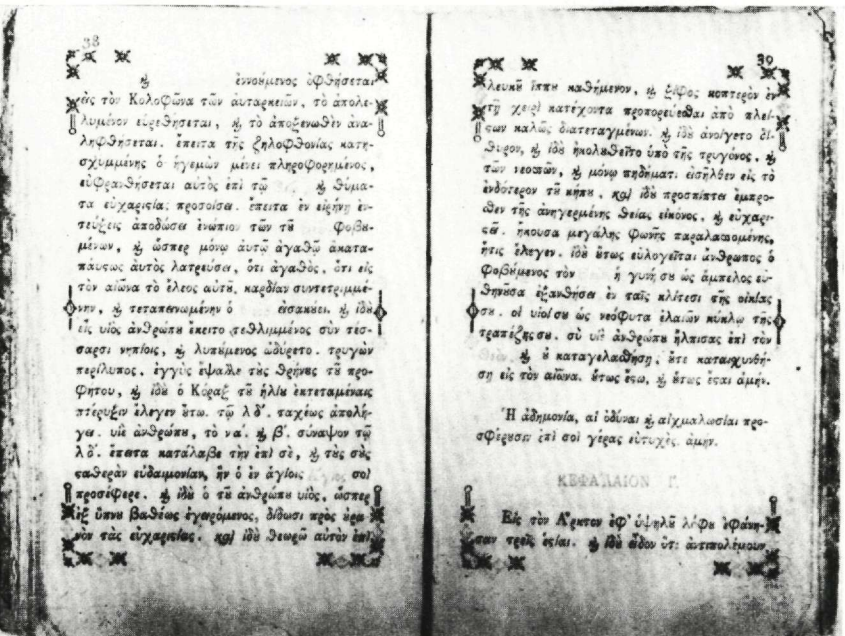 38
ϗ ἐννούμενος ὀφθήσεται
εἰς τὸν Κολοφῶνα τῶν αὐταρκειῶν, τὸ ἀπολε-
λυμένον εὑρεθήσεται, ϗ τὸ ἀποξενωθὲν ἀνα-
ληφθήσεται. ἔπειτα τῆς ζηλοφθονίας κατη-
σχυμμένης ὁ ἡγεμὼν μένει πληροφορημένος,
εὐφρανθήσεται αὐτὸς ἐπὶ τῷ ϗ θύμα-
τα εὐχαριϛίας προσοίσει. ἔπειτα ἐν εἰρήνῃ ἐν-
τεύξεις ἀποδώσει ἐνώπιον τῶν τȣ͂ φοβȣ-
μένων, ϗ ὥσπερ μόνῳ αὐτῷ ἀγαθῷ ἀκατα-
παύϛως αὐτὸς λατρεύσει, ὅτι ἀγαθὸς, ὅτι εἰς
τὸν αἰῶνα τὸ ἔλεος αὐτȣ͂, καρδίαν συντετριμμέ-
νην, ϗ τεταπεινωμένην ὁ εἰσακȣ́ει. ϗ ἰδȣ̀
εἷς υἱὸς ἀνθρώπȣ ἔκειτο τεθλιμμένος σὺν τέσ-
σαρσι νηπίοις, ϗ λυπȣ́μενος ὠδύρετο. τρυγὼν
περίλυπος. ἐγγὺς ἔψαλλε τȣ̀ς θρήνȣς τȣ͂ προ-
φήτȣ, ϗ ἰδȣ̀ ὁ Κόραξ τȣ͂ ἡλίȣ ἐκτεταμέναις
πτέρυξιν ἔλεγεν ȣ́τω. τῷ λδ΄. ταχέως ἀπολή-
γει. υἱὲ ἀνθρώπȣ, τὸ να΄. ϗ β΄. σύναψον τῷ
λδ΄. ἔπειτα κατάλαβε τὴν ἐπὶ σὲ, ϗ τȣ̀ς σȣ̀ς
ϛαθερὰν εὐδαιμονίαν, ἣν ὁ ἐν ἁγίοις ἅγιος σοὶ
προσέφερε. ϗ ἰδȣ̀ ὁ τȣ͂ ἀνθρώπȣ υἱὸς, ὥσπερ
ἐξ ὕπνȣ βαθέως ἐγειρόμενος, δίδωσι πρὸς ȣ̓ρα-
νὸν τὰς εὐχαριϛίας. καὶ ἰδȣ̀ θεωρῶ αὐτὸν ἐπὶ
39
λευκȣ͂ ἵππȣ καθήμενον, ϗ ξίφος κοπτερὸν ἐν
τῇ χειρὶ κατέχοντα προπορεύεσθαι ἀπὸ πλεί-
ϛων καλῶς διατεταγμένων. ϗ ἰδȣ̀ ἀνοίγετο δί-
θυρον, ϗ ἰδȣ̀ ἠκολȣθεῖτο ὑπὸ τῆς τρυγόνος, ϗ
τῶν νεοσσῶν, ϗ μόνῳ πηδήματι εἰσῆλθεν εἰς τὸ
ἐνδότερον τȣ͂ κήπȣ. καὶ ἰδȣ̀ προσπίπτει ἔμπρο-
σθεν τῆς ἀνηγερμένης θείας εἰκόνος, ϗ εὐχαρι-
ϛεῖ. ἤκουσα μεγάλης φωνῆς παραλασσομένης,
ἥτις ἔλεγεν. ἰδȣ̀ ȣ́τως εὐλογεῖται ἄνθρωπος ὁ
φοβȣ́μενος τὸν ἡ γυνή σȣ ὡς ἄμπελος εὐ-
θηνȣ͂σα ἐξανθήσει ἐν ταῖς κλίτεσι τῆς οἰκίας
σȣ. οἱ υἱοί σȣ ὡς νεόφυτα ἐλαιῶν κύκλῳ τῆς
τραπέζης σȣ. σὺ υἱὲ ἀνθρώπȣ ἤλπισας ἐπὶ τὸν
ϗ ȣ̓ καταγελασθήσῃ, ȣ́τε καταισχυνθή-
σῃ εἰς τὸν αἰῶνα. ȣ́τως ἔϛω, ϗ ȣ́τως ἔϛαι ἀμήν.
Ἡ ἀδημονία, αἱ ὀδύναι ϗ αἰχμαλωσίαι προ-
σφέρȣσιν ἐπὶ σοὶ γέρας εὐτυχές. ἀμήν.
ΚΕΦΑΛΑΙΟΝ Γ.
Εἰς τὸν Ἄρκτον ἐφ' ὑψηλȣ͂ λόφȣ ἐφάνη-
σαν τρεῖς ἑϛίαι. ϗ ἰδȣ̀ εἶδον ὅτι ἀντιπολέμουν